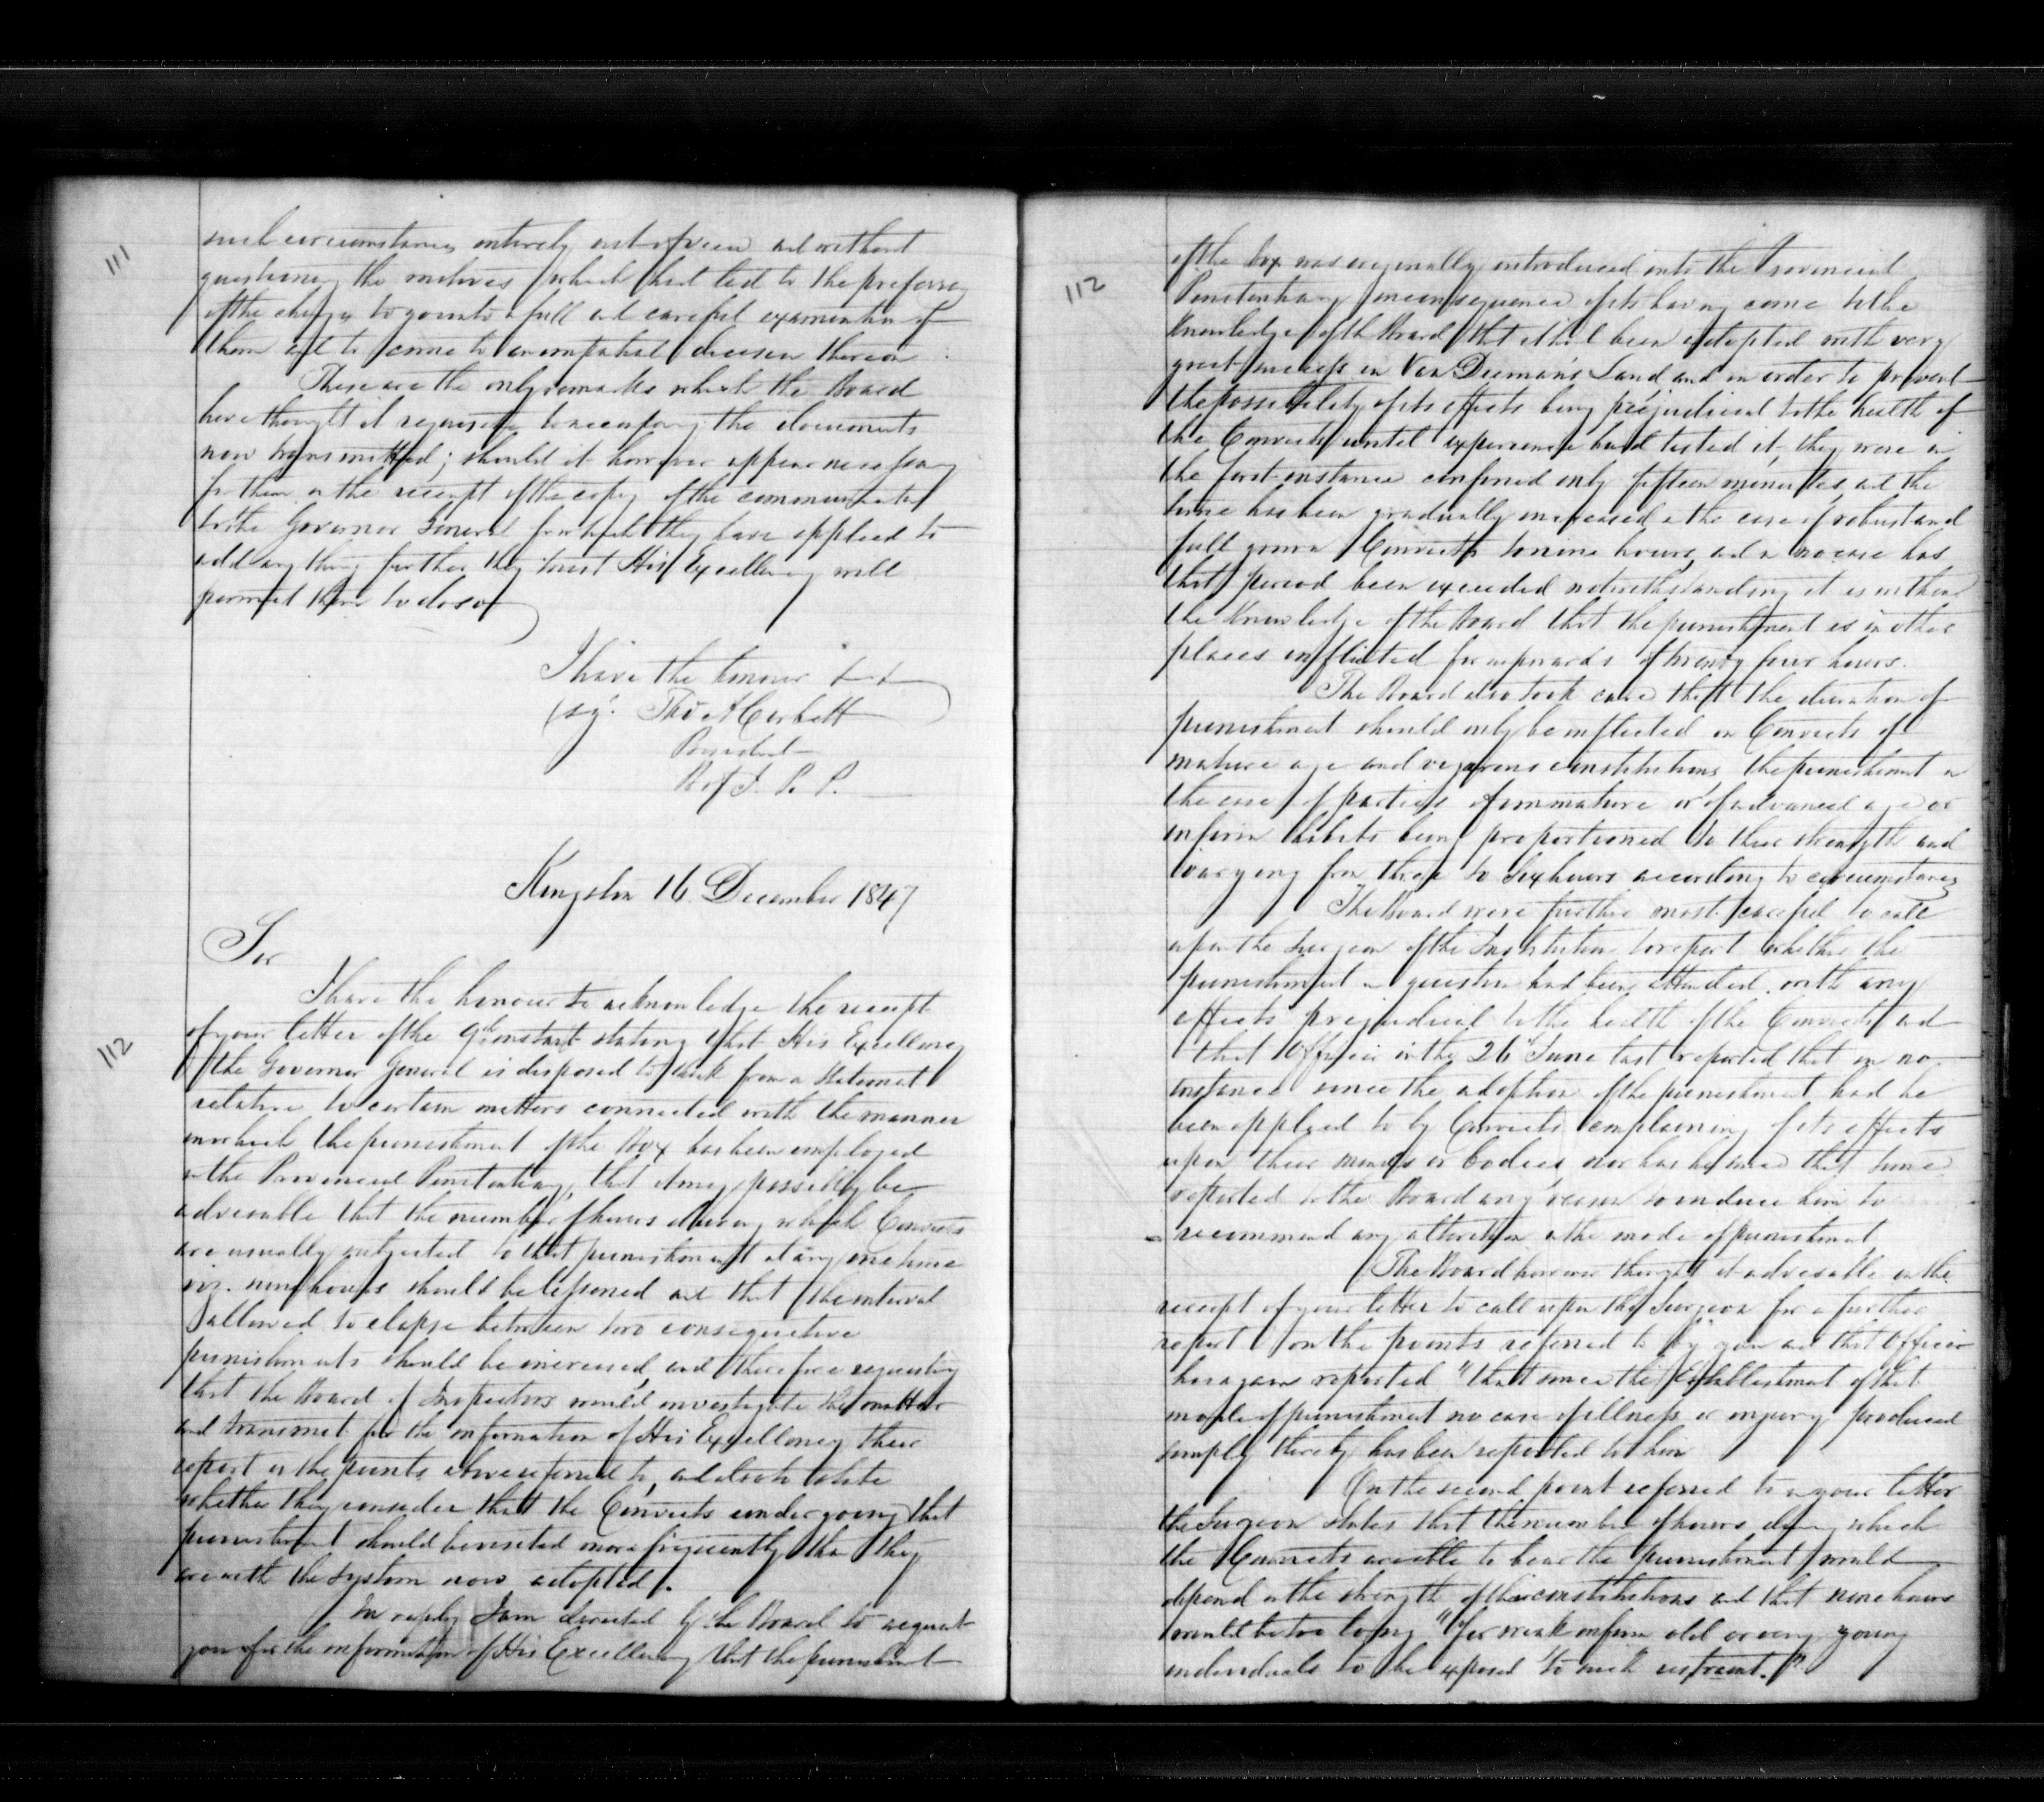 111
such circumstances entirely out of view and without
questioning the motives which had led to the preferring
of the charges to go into a full and careful examination of
them and to come to an impartial decision thereon
These are the only remarks which the Board
have thought it requisite to accompany the documents
now transmitted; should it however appear necessary
for them on the receipt of the copy of the communication
to the Governor General for which they have applied to
add any thing further they trust His Excellency will
permit them to do so
I have the honour
(sg. Thos A Corbett
President
B of I. P. P.
Kingston 16 December 1847
Sir
112
I have the honour to acknowledge the receipt
of your letter of the 9th instant stating that His Excellency
the Governor General is disposed to think from a statement
relative to certain matters connected with the manner
in which the punishment of the Box has been employed
in the Provincial Penitentiary, that it may possibly be
advisable that the number of hours during which Convicts
are usually subjected to that punishment at any one time
viz. nine hours should be lessened and that the interval
allowed to elapse between two consequetive
punishments should be increased, and therefore requesting
that the Board of Inspectors would investigate the matter
and transmit for the information of His Excellency their
report on the points above referred to, and also to state
whether they consider that the Convicts undergoing that
punishment should be visited more frequently than they
are with the system now adopted.
In reply I am directed by the Board to acquaint
you for the information of His Excellency that the punishment
112
of the box was originally introduced into the Provincial
Penitentiary in consequence of its having come to the
knowledge of the Board that it had been adopted with very
great success in Van Dieman's Land, and in order to prevent
the possibility of its effects being prejudicial to the health of
the Convicts until experience had tested it, they were in
the first instance confined only fifteen minutes, and the
time has been gradually increased in the case of robust and
full grown Convicts to nine hours, and in no case has
that period been exceeded notwithstanding it is within
the knowledge of the Board that the punishment is in other
places inflicted for upwards of twenty four hours.
The Board also took care that the duration of
punishment should only be inflicted on Convicts of
mature age and vigorous constitutions, the punishment in
the case of parties of immature or of advanced age or
infirm habits being proportioned to their strength and
varying from three to six hours according to circumstances
The Board were further most careful to call
upon the Surgeon of the Institution to report whether the
punishment in question had been attended with any
effects prejudicial to the health of the Convicts, and
that Officer on the 26th June last reported that in no
instance since the adoption of the punishment had he
been applied to by Convicts complaining of its effects
upon their minds or bodies, nor has he since that time
reported to the Board any reason to induce him to
recommend any alteration in the mode of punishment.
The Board however thought it advisable on the
receipt of your letter to call upon the Surgeon for a further
report on the points referred to by you and that Officer
has again reported "that since the Establishment of that
mode of punishment no case of illness or injury produced
simply thereby has been reported to him
On the second point referred to in your letter
the Surgeon states that the number of hours during which
the Convicts are able to bear the punishment would
depend on the strength of their constitutions and that nine hours
would be too long "for weak infirm old or very young
individuals to be exposed to such restraint."